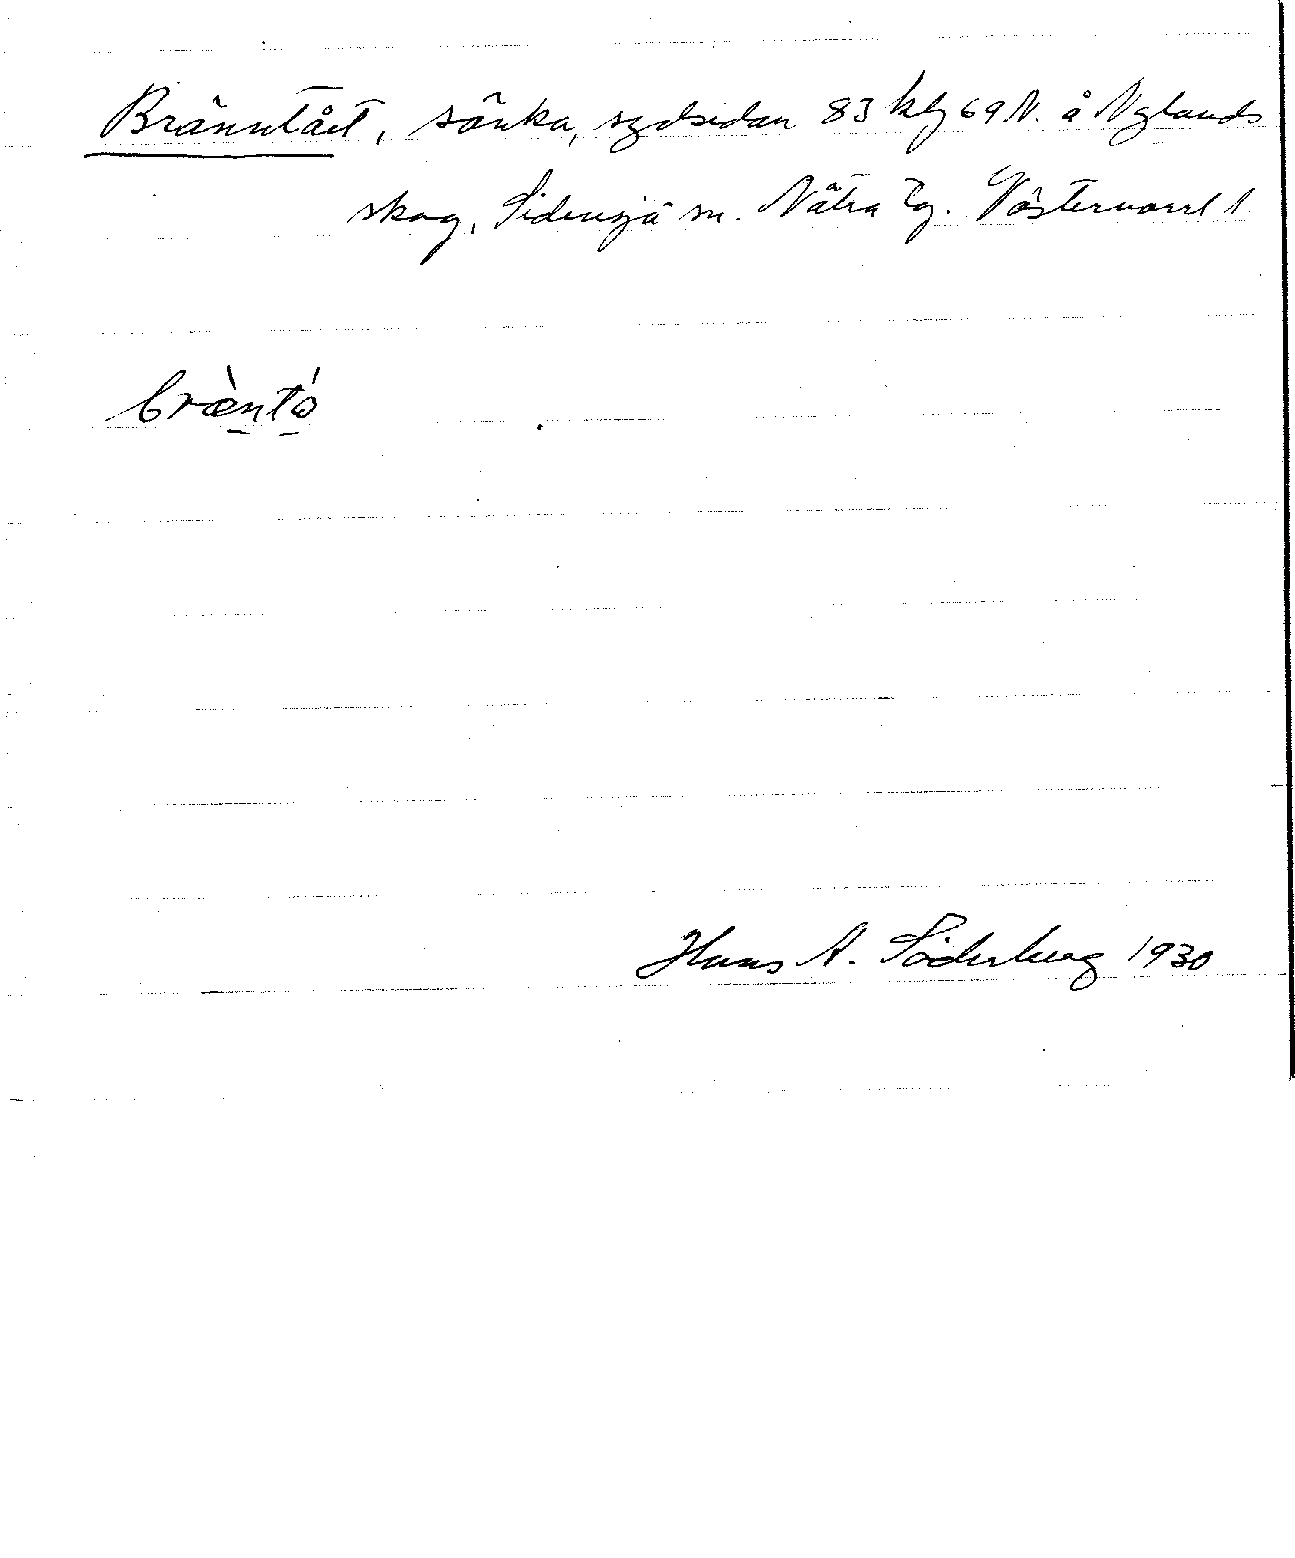 Bränntået, sänka, sydsidan 83 klg 69 N. å Nylands
skog, Sidensjö sn. Nätra tg. Västernorrl l
bræ̀ntó
Hans A. Söderberg 1930